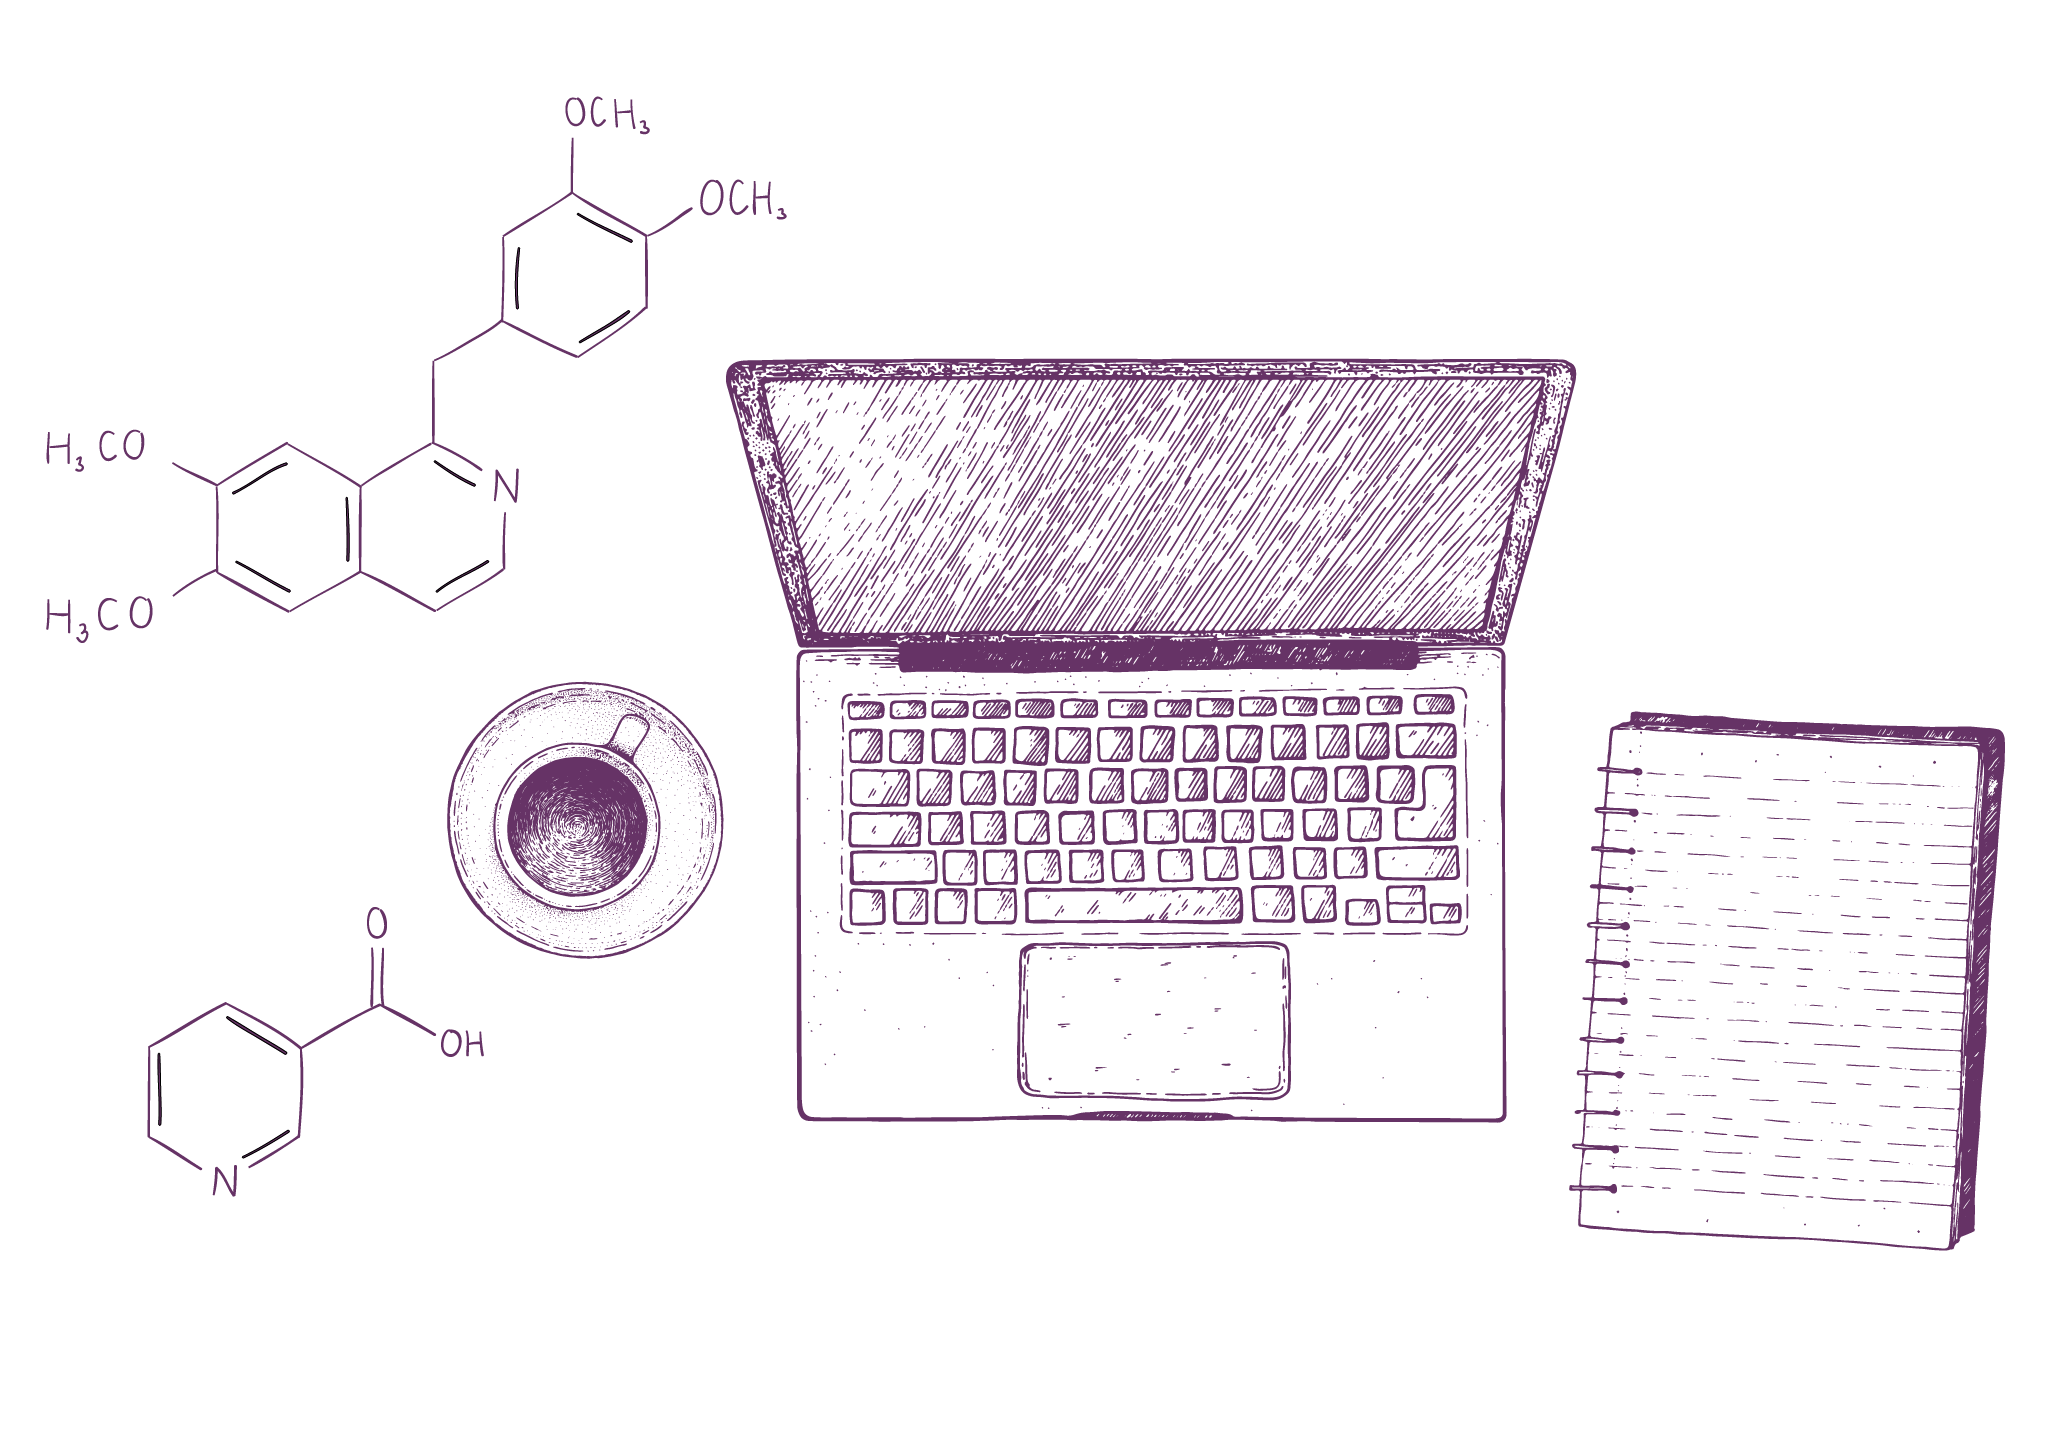 OCH₃
OCH₃
H₃CO
N
H₃CO
O
OH
N